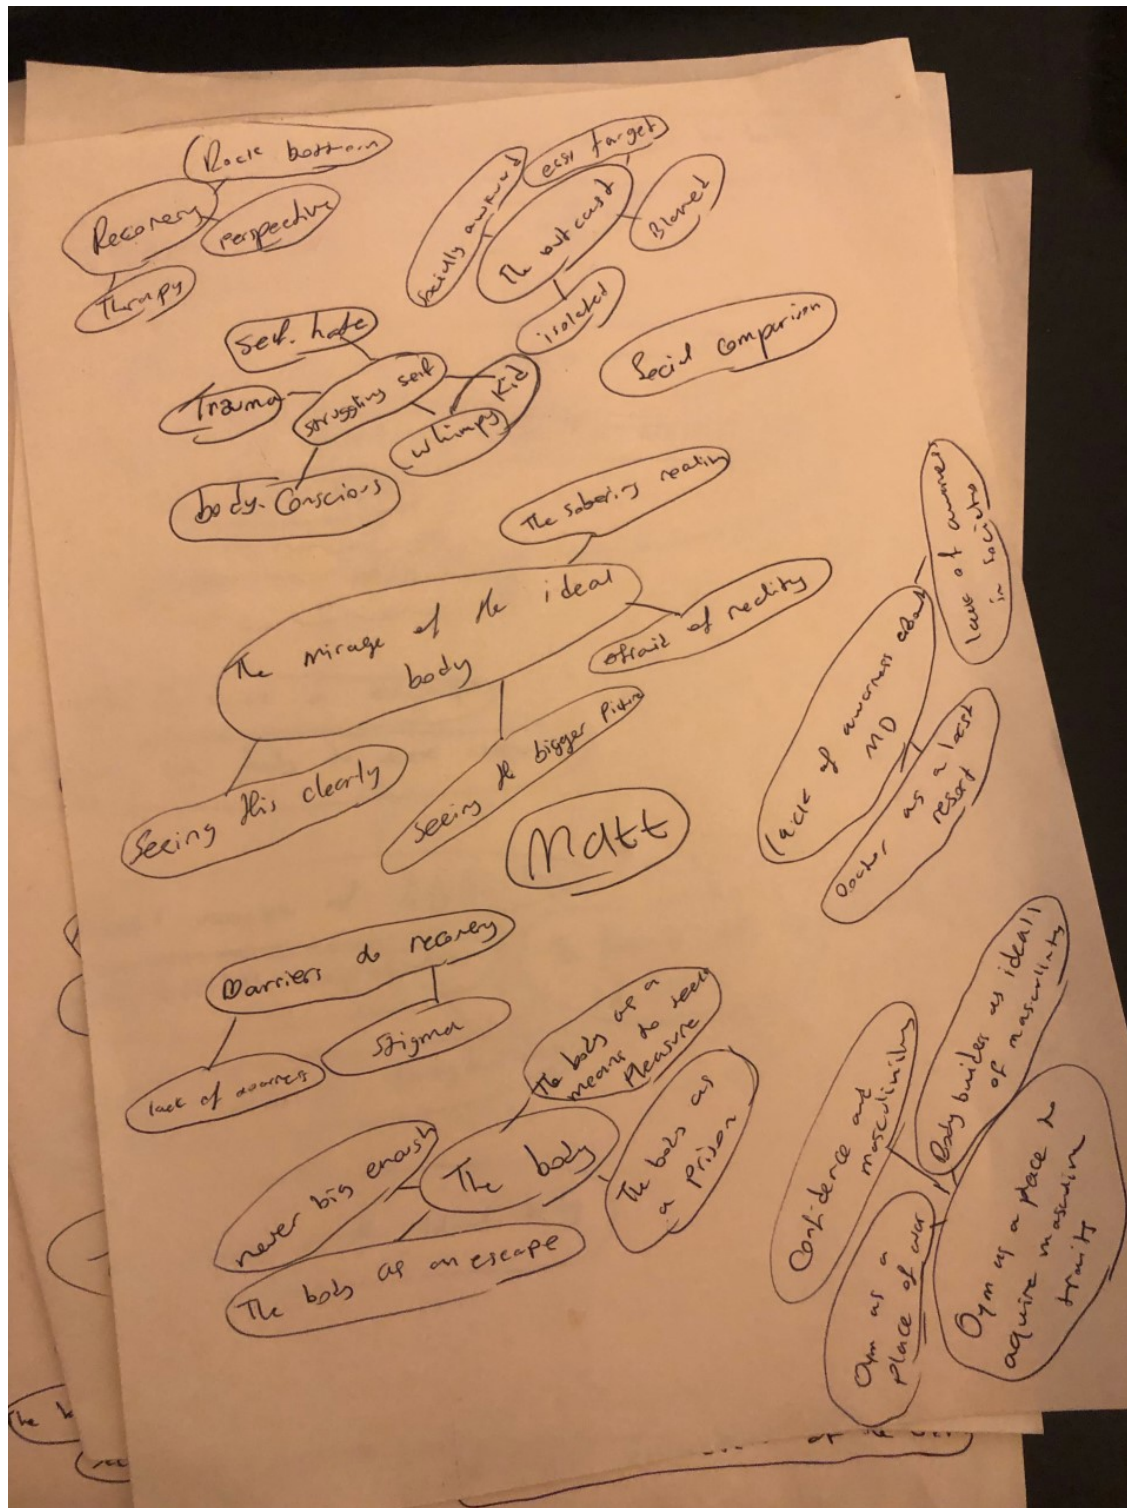 Rock bottom
Recovery
perspective
Therapy
socially awkward
easy target
The outcast
Blamed
isolated
Self. hate
Trauma
struggling self
Kid
whimpy
body. Conscious
Social comparison
The sobering reality
The mirage of the ideal
body
afraid of reality
Seeing this clearly
Seeing the bigger Picture
lack of awarness
in society
lack of awarness about
MD
Doctor as a last
resort
Matt
Barriers to recovery
Stigma
lack of awarness
The body as a
means to seek
Pleasure
The body
The body as
a prison
never big enough
The body as an escape
Confidence and
masculinity
Body builders as ideall
of masculinity
Gym as a
place of war
Gym as a place to
aquire masculine
traits